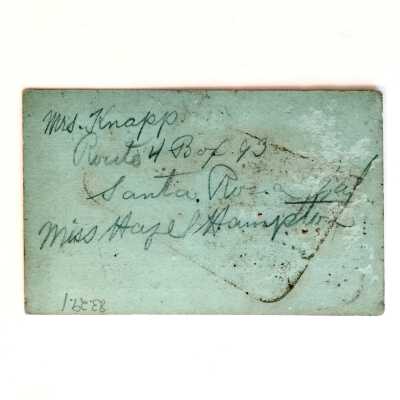 Mrs. Knapp
Route 4 Box 93
Santa Rosa Cal
Miss Hazel Hampton
83.27.1